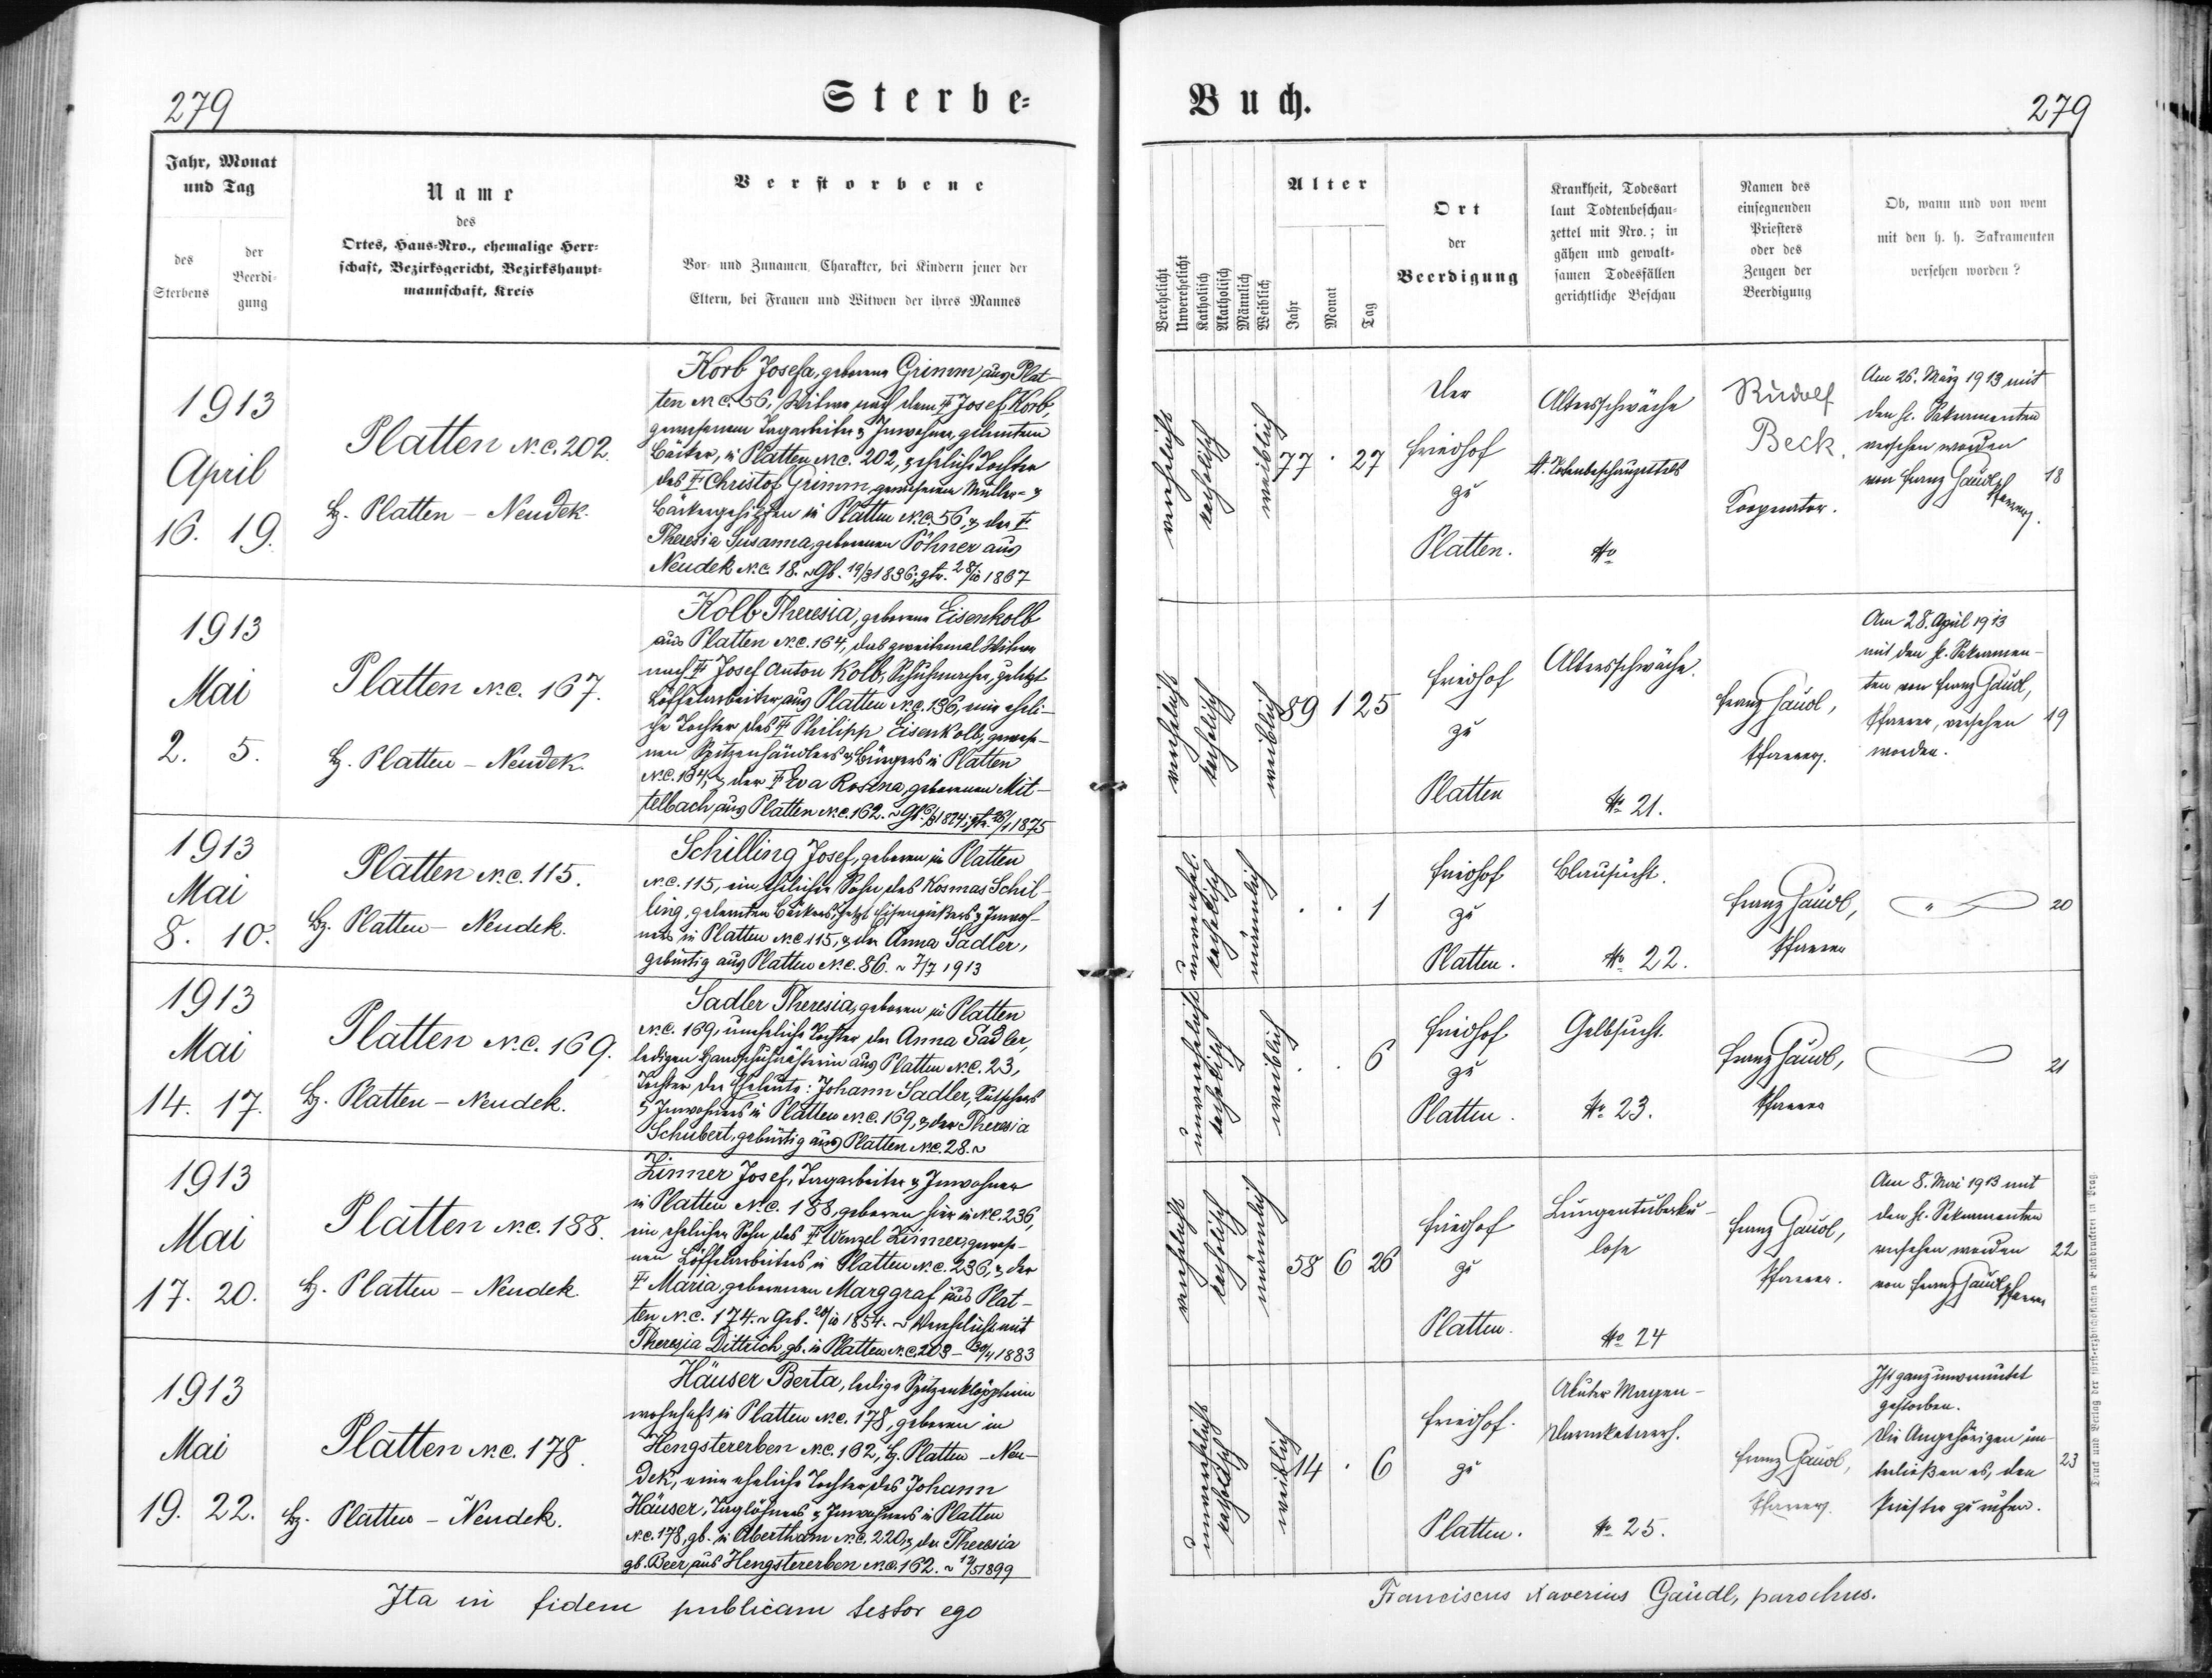 279
Sterbe-
Jahr, Monat
und Tag
des
Sterbens
der
Beerdi-
gung
Name
des
Ortes, Haus-Nro., ehemalige Herr-
schaft, Bezirksgericht, Bezirkshaupt-
mannschaft, Kreis
Verstorbene
Vor- und Zunamen, Charakter, bei Kindern jener der
Eltern, bei Frauen und Witwen der ihres Mannes
1913
April
16. 19.
Platten N.C. 202.
Bz. Platten – Neudek.
Korb Josefa, geborene Grimm aus Plat-
ten N.C. 56, Witwe nach dem † Josef Korb,
gewesenem Tagarbeiter & Inwohner, gelerntem
Bäcker, in Platten N.C. 202, & ehelich Tochter
des † Christof Grimm, gewesenen Müller- &
in Platten N.C. 56, & der †
Theresia Susanna, geborenen Pöhner aus
Neudek N.C. 18. ~ Gb. 19/3 1836; gtr. 28/10 1867
1913
Mai
2. 5.
Platten N.C. 167.
Bz. Platten – Neudek.
Kolb Theresia, geborene Eisenkolb
aus Platten N.C. 164, das zweitemal Witwe
nach † Josef Anton Kolb, Schuhmacher, zuletzt
Löffelarbeiter aus Platten N.C. 136, eine eheli-
che Tochter des † Philipp Eisenkolb, gewese-
nen Spitzenhändlers & Bürgers in Platten
N.C. 164, & der † Eva Rosina, geborenen Mit-
telbach aus Platten N.C. 162. ~ 1824; gtr. 1875
1913
Mai
8. 10.
Platten N.C. 115.
Bz. Platten – Neudek.
Schilling Josef, geboren in Platten
N.C. 115, ein ehelicher Sohn des Kosmas Schil-
ling, gelernten Bäckers, jetzt Eisengießers & Inwoh-
ners in Platten N.C. 115, & der Anna Sadler,
gebürtig aus Platten N.C. 86. ~ 7/7 1913
1913
Mai
14. 17.
Platten N.C. 169.
Bz. Platten – Neudek.
Sadler Theresia, geboren in Platten
N.C. 169, uneheliche Tochter der Anna Sadler,
ledigen Handschuhnähterin aus Platten N.C. 23,
Tochter der Eheleute: Johann Sadler, Kutschers
& Inwohners in Platten N.C. 169, & der Theresia
Schubert, gebürtig aus Platten N.C. 28. ~
1913
Mai
17. 20.
Platten N.C. 188.
Bz. Platten – Neudek.
Zinner Josef, Tagarbeiter & Inwohner
in Platten N.C. 188, geboren hier in N.C. 236,
ein ehelicher Sohn des † Wenzel Zinner, gewese-
nen Löffelarbeiters in Platten N.C. 236, & der
† Maria, geborenen Marggraf aus Plat-
ten N.C. 174. ~ Geb. 20/10 1854. ~ Verehelicht mit
Theresia Dittrich, gb. in Platten N.C. 203 – 30/4 1883
1913
Mai
19. 22.
Platten N.C. 178.
Bz. Platten – Neudek.
Häuser Berta, ledige Spitzenklöpplerin
wohnhaft in Platten N.C. 178, geboren in
Hengstererben N.C. 162, G. Platten – Neu-
dek, eine eheliche Tochter des Johann
Häuser, Taglöhners & Inwohners in Platten
N.C. 178, gb. in Abertham N.C. 220, & der Theresia
gb. Beer, aus Hengstererben N.C. 162. ~ 13/5 1899
Ita in fidem publicam testor ego
Buch.
279
Verehelicht
Unverehelicht
Katholisch
Akatholisch
Männlich
Weiblich
Alter
Jahr
Monat
Tag
Ort
der
Beerdigung
Krankheit, Todesart
laut Todtenbeschau-
zettel mit Nro.; in
gähen und gewalt-
samen Todesfällen
gerichtliche Beschau
Namen des
einsegnenden
Priesters
oder des
Zeugen der
Beerdigung
Ob, wann und von wem
mit den h. h. Sakramenten
versehen worden?
verehelicht
katholisch
weiblich
77 · 27
Der
Friedhof
zu
Platten.
Altersschwäche
lt. Totenbeschauzettels
No
Rudolf
Beck,
Kooperator.
Am 26. März 1913 mit
den hl. Sakramenten
versehen worden
von Franz Gaudl
Pfarrer.
18
verehelicht
katholisch
weiblich
89 1 25
Friedhof
zu
Platten
Altersschwäche.
No 21.
Franz Gaudl,
Pfarrer.
Am 28. April 1913
mit den hl. Sakramen-
ten von Franz Gaudl,
Pfarrer, versehen
worden.
19
unverehel.
katholisch
männlich
· · 1
Friedhof
zu
Platten.
Blausucht.
No 22.
Franz Gaudl,
Pfarrer
20
unverehelicht
katholisch
weiblich
· · 6
Friedhof
zu
Platten.
Gelbsucht.
No 23.
Franz Gaudl,
Pfarrer
21
verehelicht
katholisch
männlich
58 6 26
Friedhof
zu
Platten.
Lungentuberku-
lose
No 24
Franz Gaudl,
Pfarrer.
Am 8. Mai 1913 mit
den hl. Sakramenten
versehen worden
von Franz Gaudl, Pfarrer
22
unverehelicht
katholisch
weiblich
14 · 6
Friedhof.
zu
Platten.
Akuter Magen-
Darmkatarrh.
No 25.
Franz Gaudl,
Pfarrer.
Ist ganz unvermutet
gestorben.
Die Angehörigen un-
terließen es, den
Priester zu rufen.
23
Franciscus Xaverius Gaudl, parochus.
Druck und Verlag der fürst-erzbischöflichen Buchdruckerei in Prag.